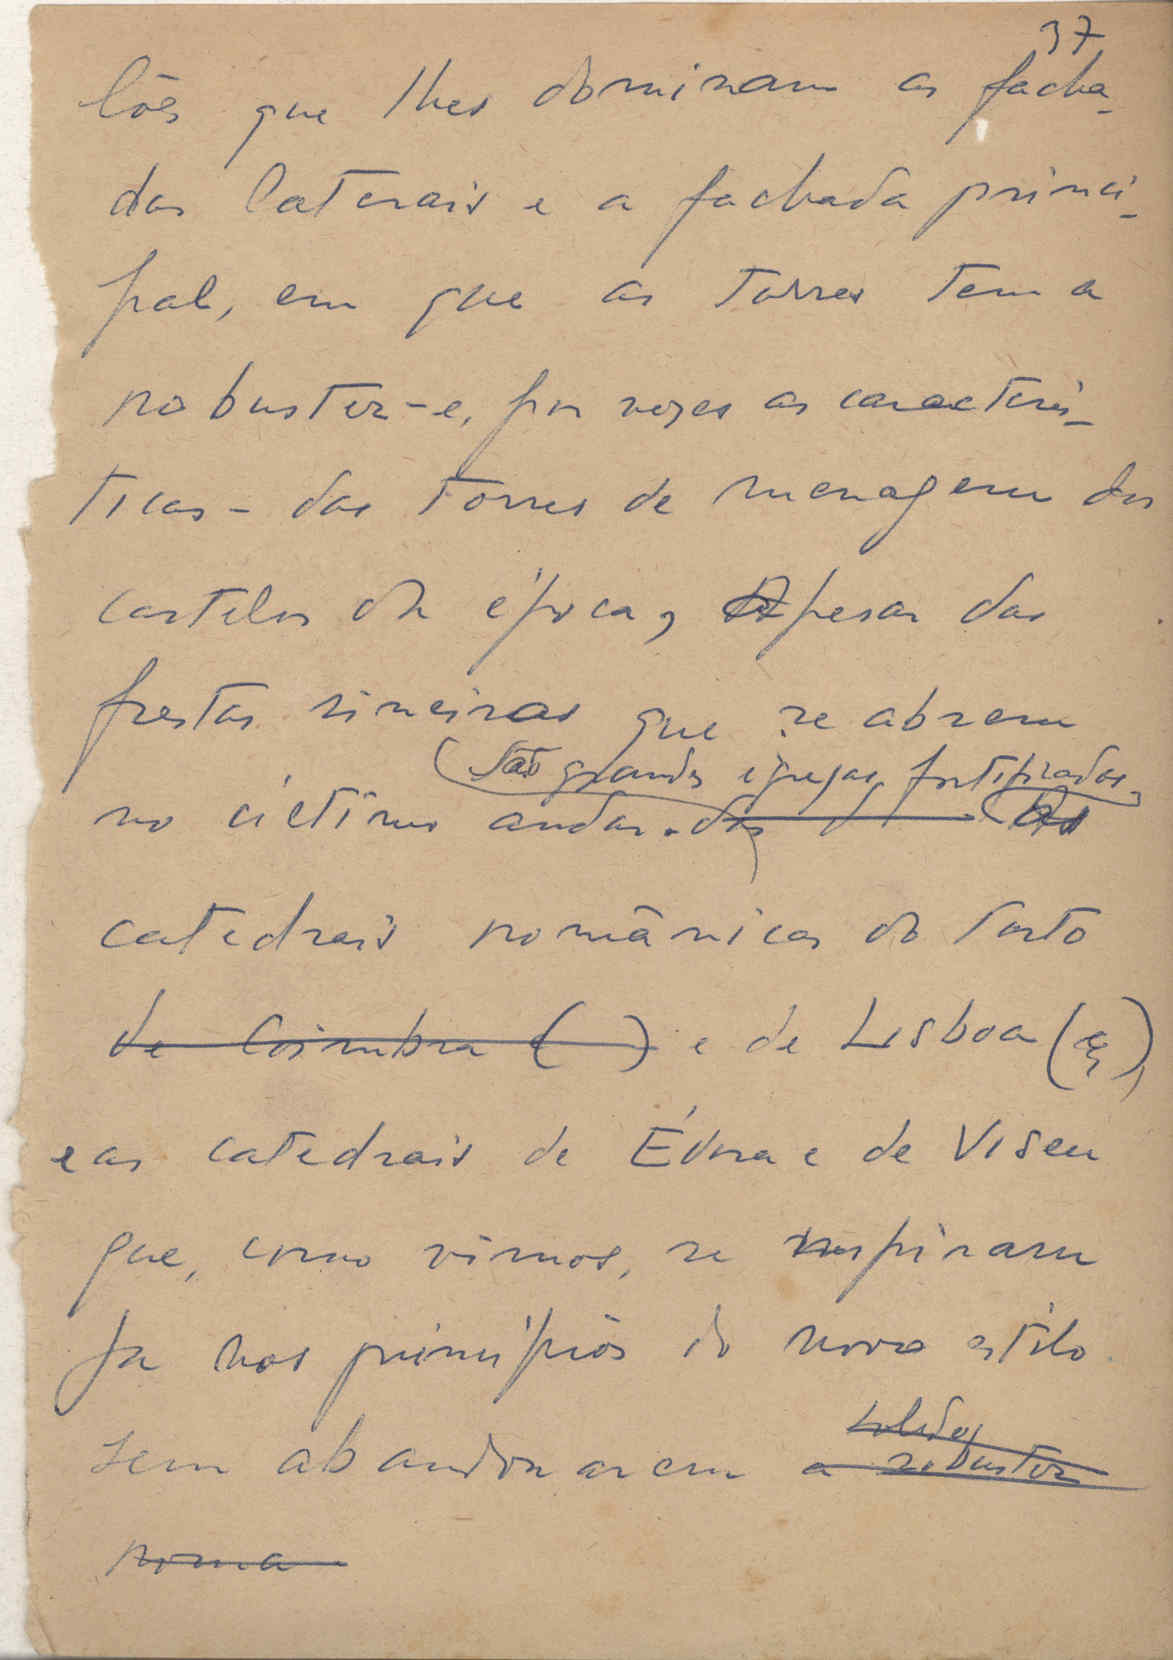 37
lões que lhes dominam as facha-
das laterais e a fachada princi-
pal, em que as torres tem a
robustez - e, por vezes as caracterís-
ticas - das torres de menagem dos
castelos da época, Apesar das
frestas sineiras que se abrem
São grandes igrejas fortificadas,
no último andar. das As
catedrais românicas do Porto
de Coimbra ( ) e de Lisboa ( ),
e as catedrais de Évora e de Viseu
que, como vimos, se inspiram
ja nos princípios do novo estilo
solidez
sem abandonarem a robustez
roma